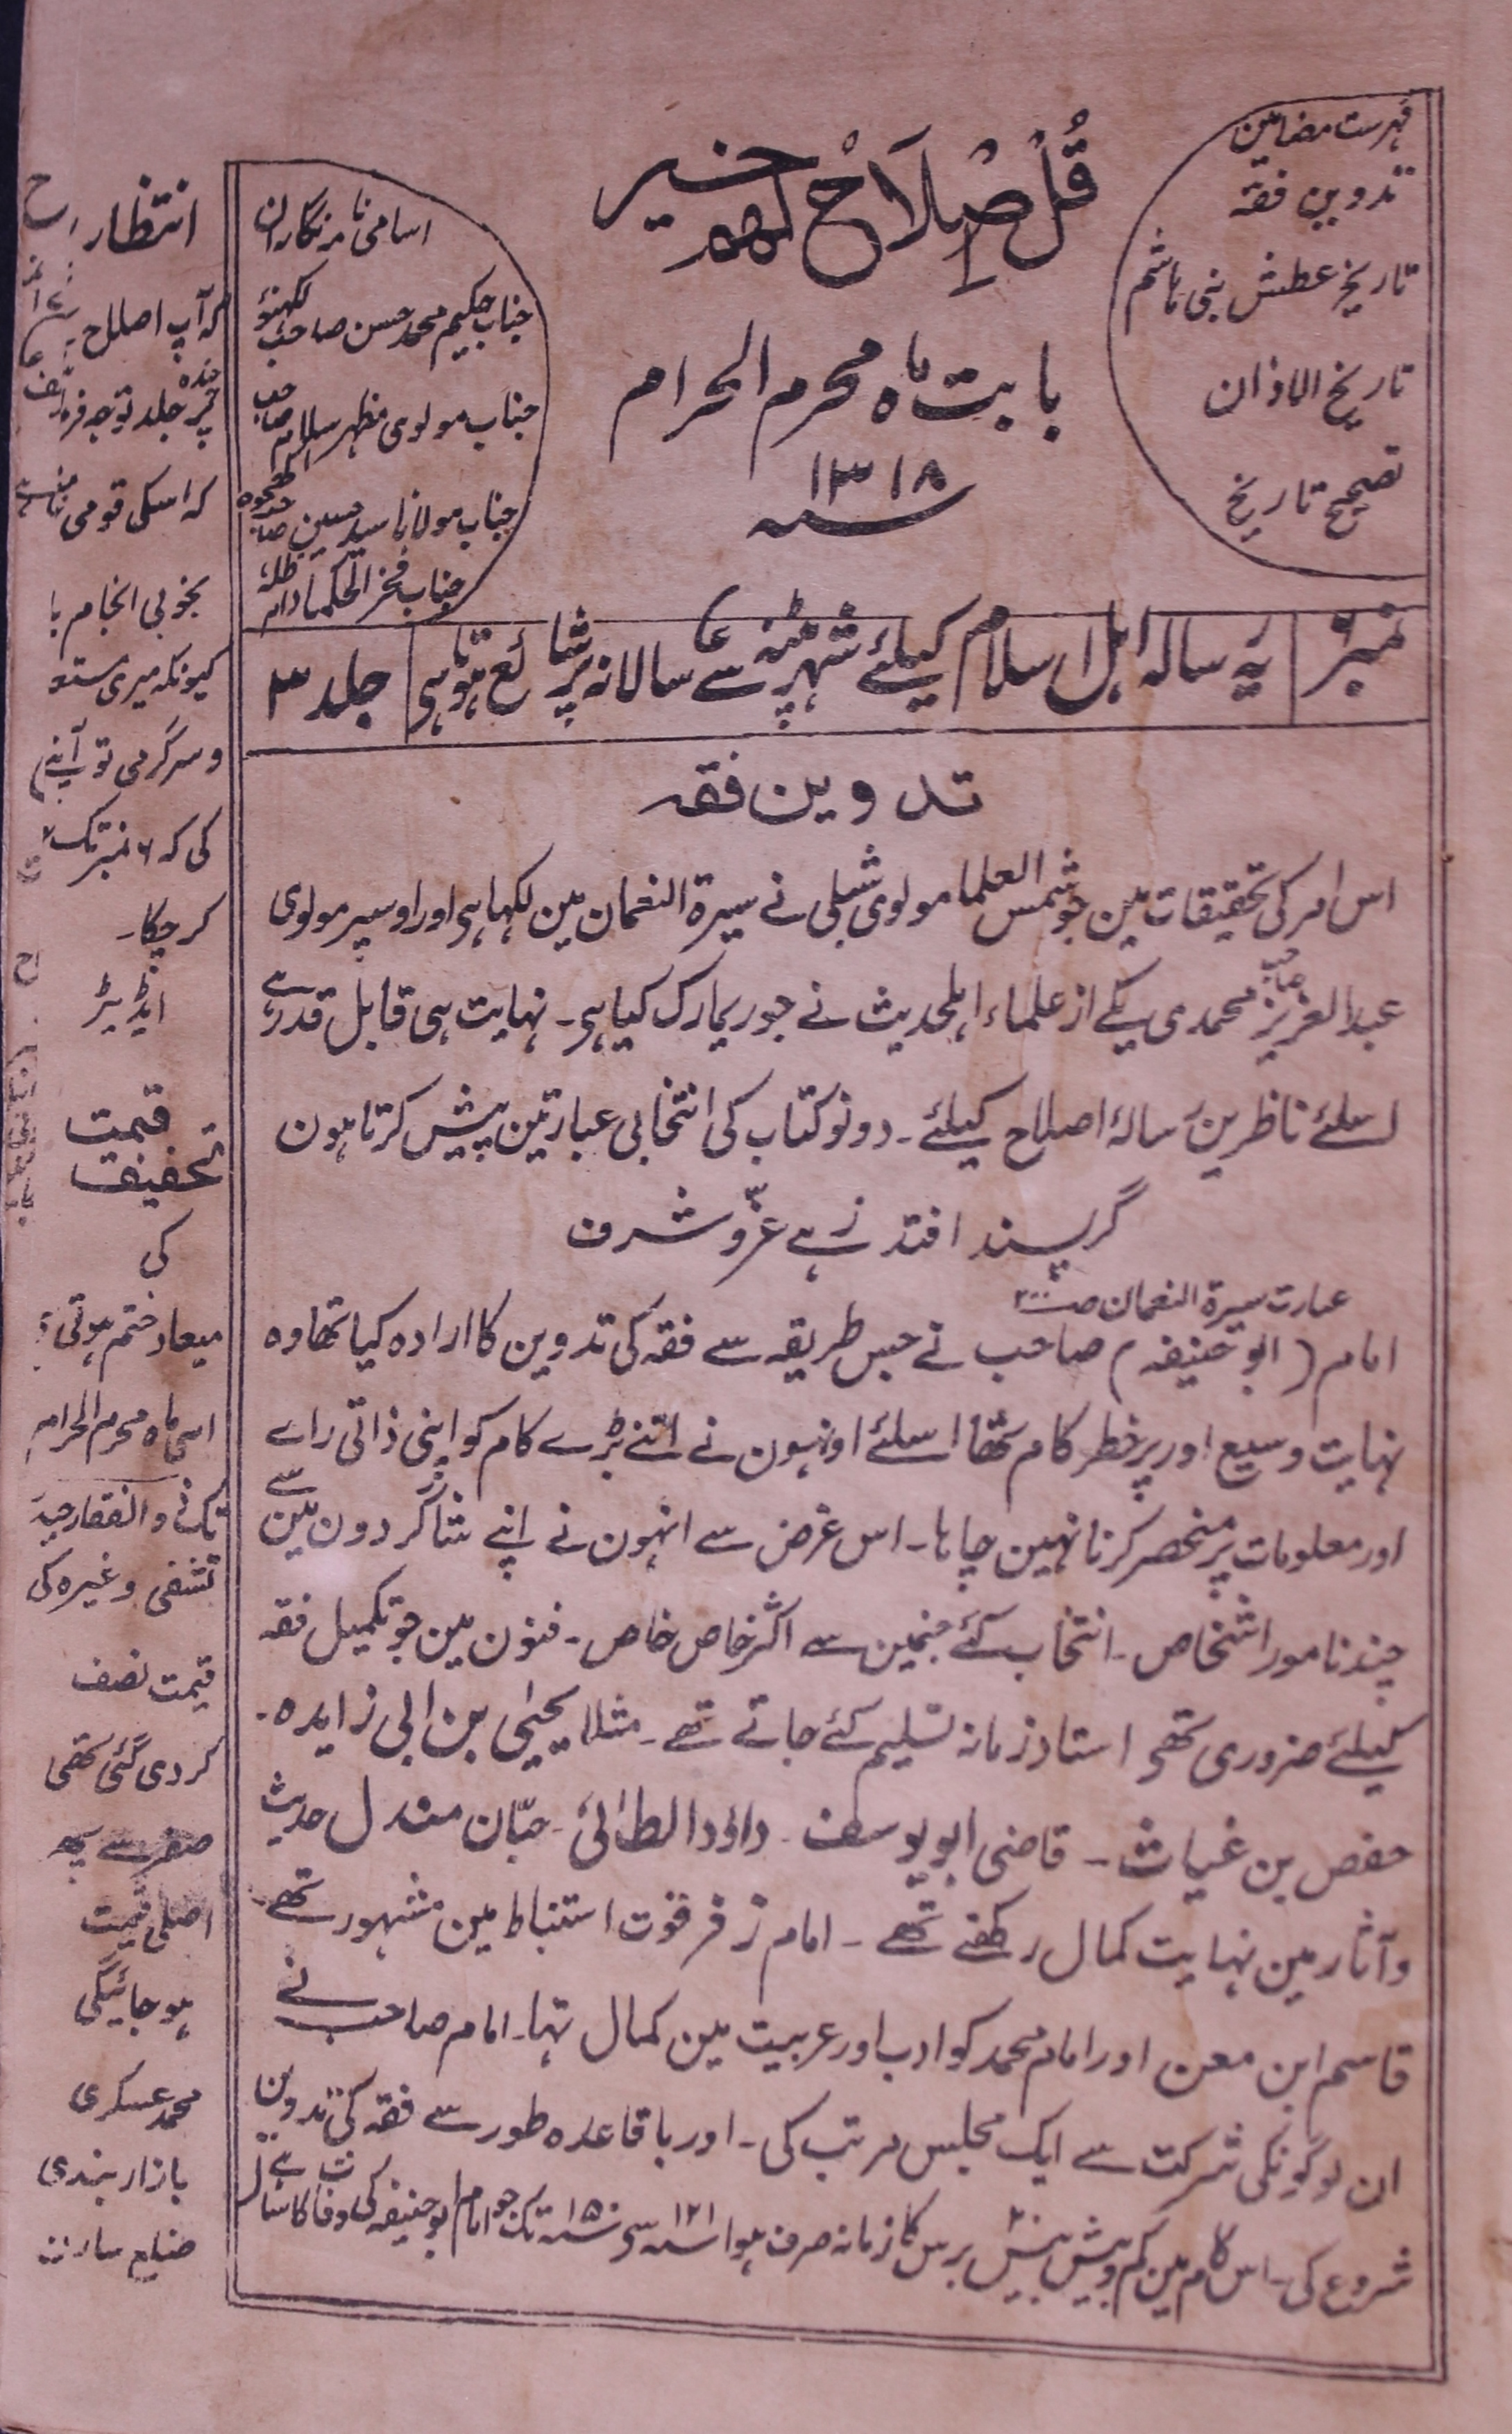 فہرست مضامین
تدوین فقہ
تاریخ عطش بنی ہاشم
تاریخ الاذان
تصحیح تاریخ
قُلْ اِصْلَاحٌ لھم خیر
بابت ماہ محرم الحرام
۱۳۱۸
سنہ
اسامی نامہ نگاران
جناب حکیم محمد حسن صاحب لکھنؤ
جناب مولوی مظہر سلام صاحب
جناب مولانا سید حسین صاحب کھجوہ
جناب فخر الحکما دام ظلہ
نمبر
یہ رسالہ اہل اسلام کیلئے شہر پٹنہ سے سالانہ پر شائع ہوتا ہی
جلد ۳
تدوین فقہ
اس امر کی تحقیقات مین جو شمس العلما مولوی شبلی نے سیرۃ النعمان مین لکہا ہی اور اوسپر مولوی
عبدالعزیز صاحب محمدی یکے از علماء اہلحدیث نے جو ریمارک کیا ہی۔ نہایت ہی قابل قدر ہے
اسلئے ناظرین رسالۂ اصلاح کیلئے۔ دونو کتاب کی انتخابی عبارتین پیش کرتا ہون
گر پسند افتد زہے عزّ و شرف
عبارت سیرۃ النعمان
امام (ابو حنیفہ) صاحب نے جس طریقہ سے فقہ کی تدوین کا ارادہ کیا تھا وہ
نہایت وسیع اور پر خطر کام تھا اسلئے اونہون نے اتنے بڑے کام کو اپنی ذاتی راے
اور معلومات پر منحصر کرنا نہین چاہا۔ اس غرض سے انہون نے اپنے شاگردون مین سے
چند نامور اشخاص۔ انتخاب کئے جنمین سے اکثر خاص خاص۔ فنون مین جو تکمیل فقہ
کیلئے ضروری تھی استاد زمانہ تسلیم کئے جاتے تھے۔ مثلا یحیٰی بن ابی زایدہ۔
حفص بن غیاث۔ قاضی ابو یوسف۔ داؤد الطائی۔ حبّان مندل حدیث
و آثار مین نہایت کمال رکھتے تھے۔ امام زفر قوت استنباط مین مشہور تھے۔
قاسم ابن معن اور امام محمد کو ادب اور عربیت مین کمال تہا۔ امام صاحب نے
ان لوگونکی شرکت سے ایک مجلس مرتب کی۔ اور باقاعدہ طور سے فقہ کی تدوین
شروع کی۔ اس کام مین کم و بیش تیس برس کا زمانہ صرف ہوا سنہ ۱۲۱ سے سنہ ۱۵۰ تک جو امام ابو حنیفہ کی وفات کا سال ہے
انتظار
کہ آپ اصلاح
چندہ پر جلد توجہ فرما
کہ اسکی قومی
بخوبی انجام پا
کیونکہ میری
و سرگرمی تو آپنے
کی کہ ۶ نمبر تک
کر چکا۔
ایڈیٹر
قیمت
تخفیف
کی
میعاد ختم ہوتی
اسی ماہ محرم الحرام
تک ذوالفقار حیدر
تشفی وغیرہ کی
قیمت نصف
کر دی گئی تھی
صفر سے پھر
اصلی قیمت
ہو جائیگی
محمد عسکری
بازار ہندی
ضلع سارن